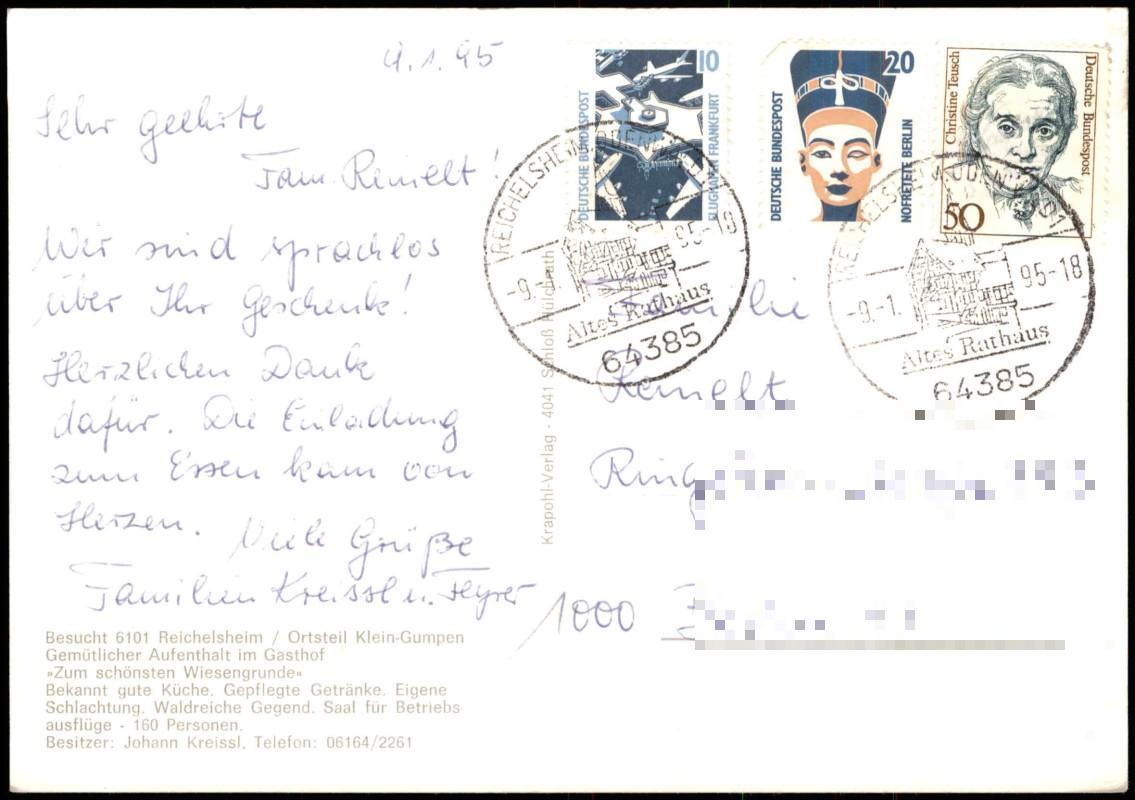 9.1.95
Sehr geehrte
Fam. Reinelt!
Wir sind sprachlos
über Ihr Geschenk!
Herzlichen Dank
dafür. Die Einladung
zum Essen kam von
Herzen.
Viele Grüße
Familien Kreissl u.
Besucht 6101 Reichelsheim / Ortsteil Klein-Gumpen
Gemütlicher Aufenthalt im Gasthof
»Zum schönsten Wiesengrunde«
Bekannt gute Küche. Gepflegte Getränke. Eigene
Schlachtung. Waldreiche Gegend. Saal für Betriebs-
ausflüge - 160 Personen.
Besitzer: Johann Kreissl, Telefon: 06164/2261
Krapohl-Verlag - 4041 Schloß Hülchrath
10
DEUTSCHE BUNDESPOST
FLUGHAFEN FRANKFURT
20
DEUTSCHE BUNDESPOST
NOFRETETE BERLIN
Christine Teusch
Deutsche Bundespost
50
REICHELSHEIM, ODENW
-9.-1. 95-18
Altes Rathaus
64385
REICHELSHEIM, ODENW
-9.-1. 95-18
Altes Rathaus
64385
Familie
Reinelt
Ring
1000